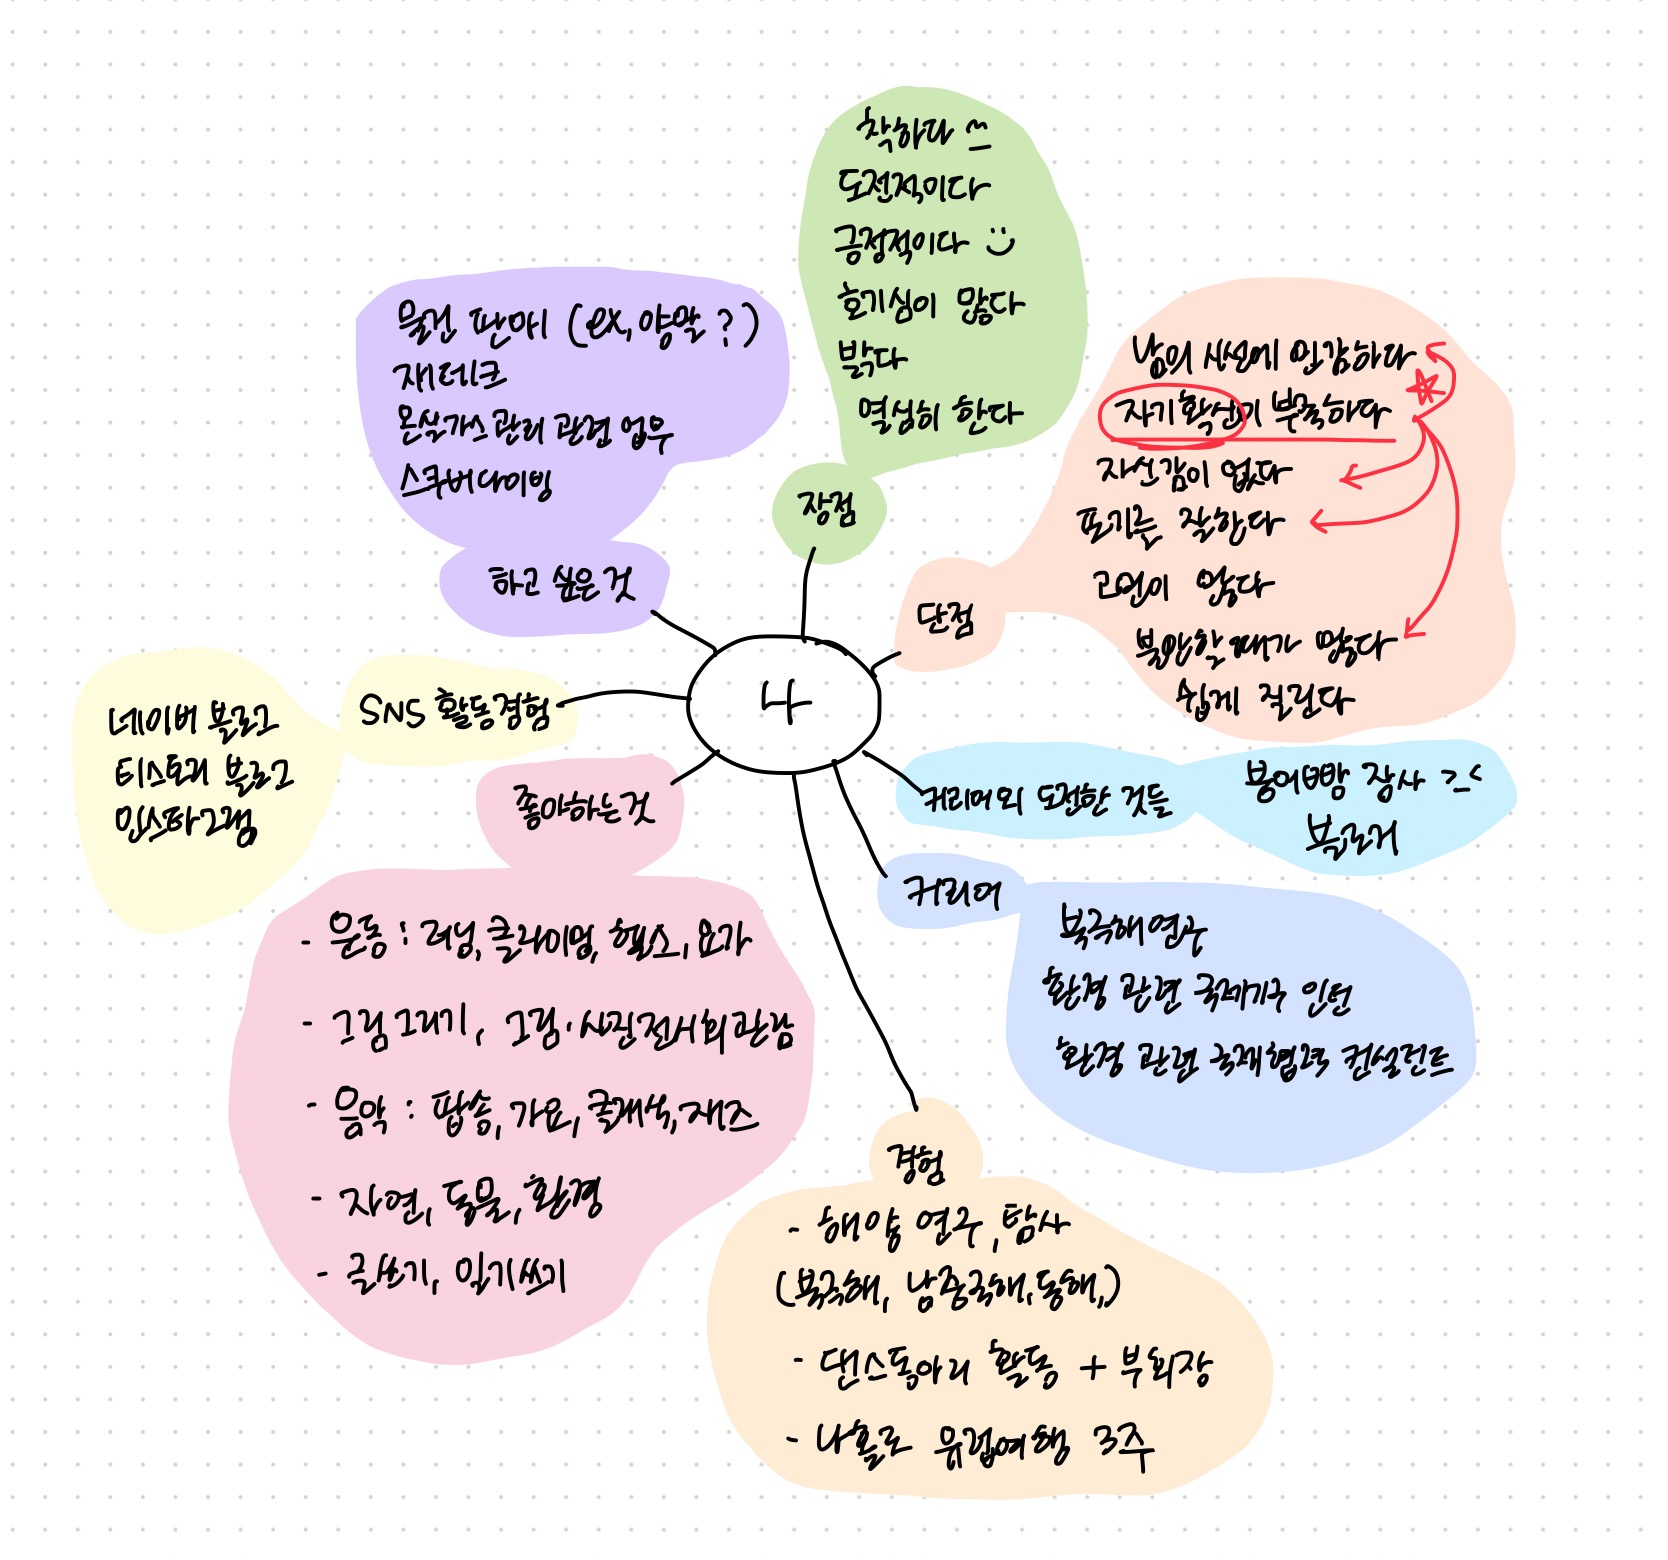 착하다
도전적이다
긍정적이다
호기심이 많다
밝다
열심히 한다
장점
물건 판매 (ex, 양말 ?)
재테크
온실가스 관리 관련 업무
스쿠버다이빙
하고 싶은 것
남의 시선에 민감하다
자기 확신이 부족하다
자신감이 없다
포기는 잘한다
고민이 많다
불안할 때가 많다
쉽게 질린다
단점
나
SNS 활동경험
네이버 블로그
티스토리 블로그
인스타그램
좋아하는 것
- 운동 : 러닝, 클라이밍, 헬스, 요가
- 그림그리기, 그림·사진전시회관람
- 음악 : 팝송, 가요, 클래식, 재즈
- 자연, 동물, 환경
- 글쓰기, 일기쓰기
커리어 외 도전한 것들
붕어빵 장사 >.<
블로거
커리어
북극해연구
환경 관련 국제기구 인턴
환경 관련 국제협력 컨설턴트
경험
- 해양 연구, 탐사
(북극해, 남중국해, 동해,)
- 댄스동아리 활동 + 부회장
- 나홀로 유럽여행 3주